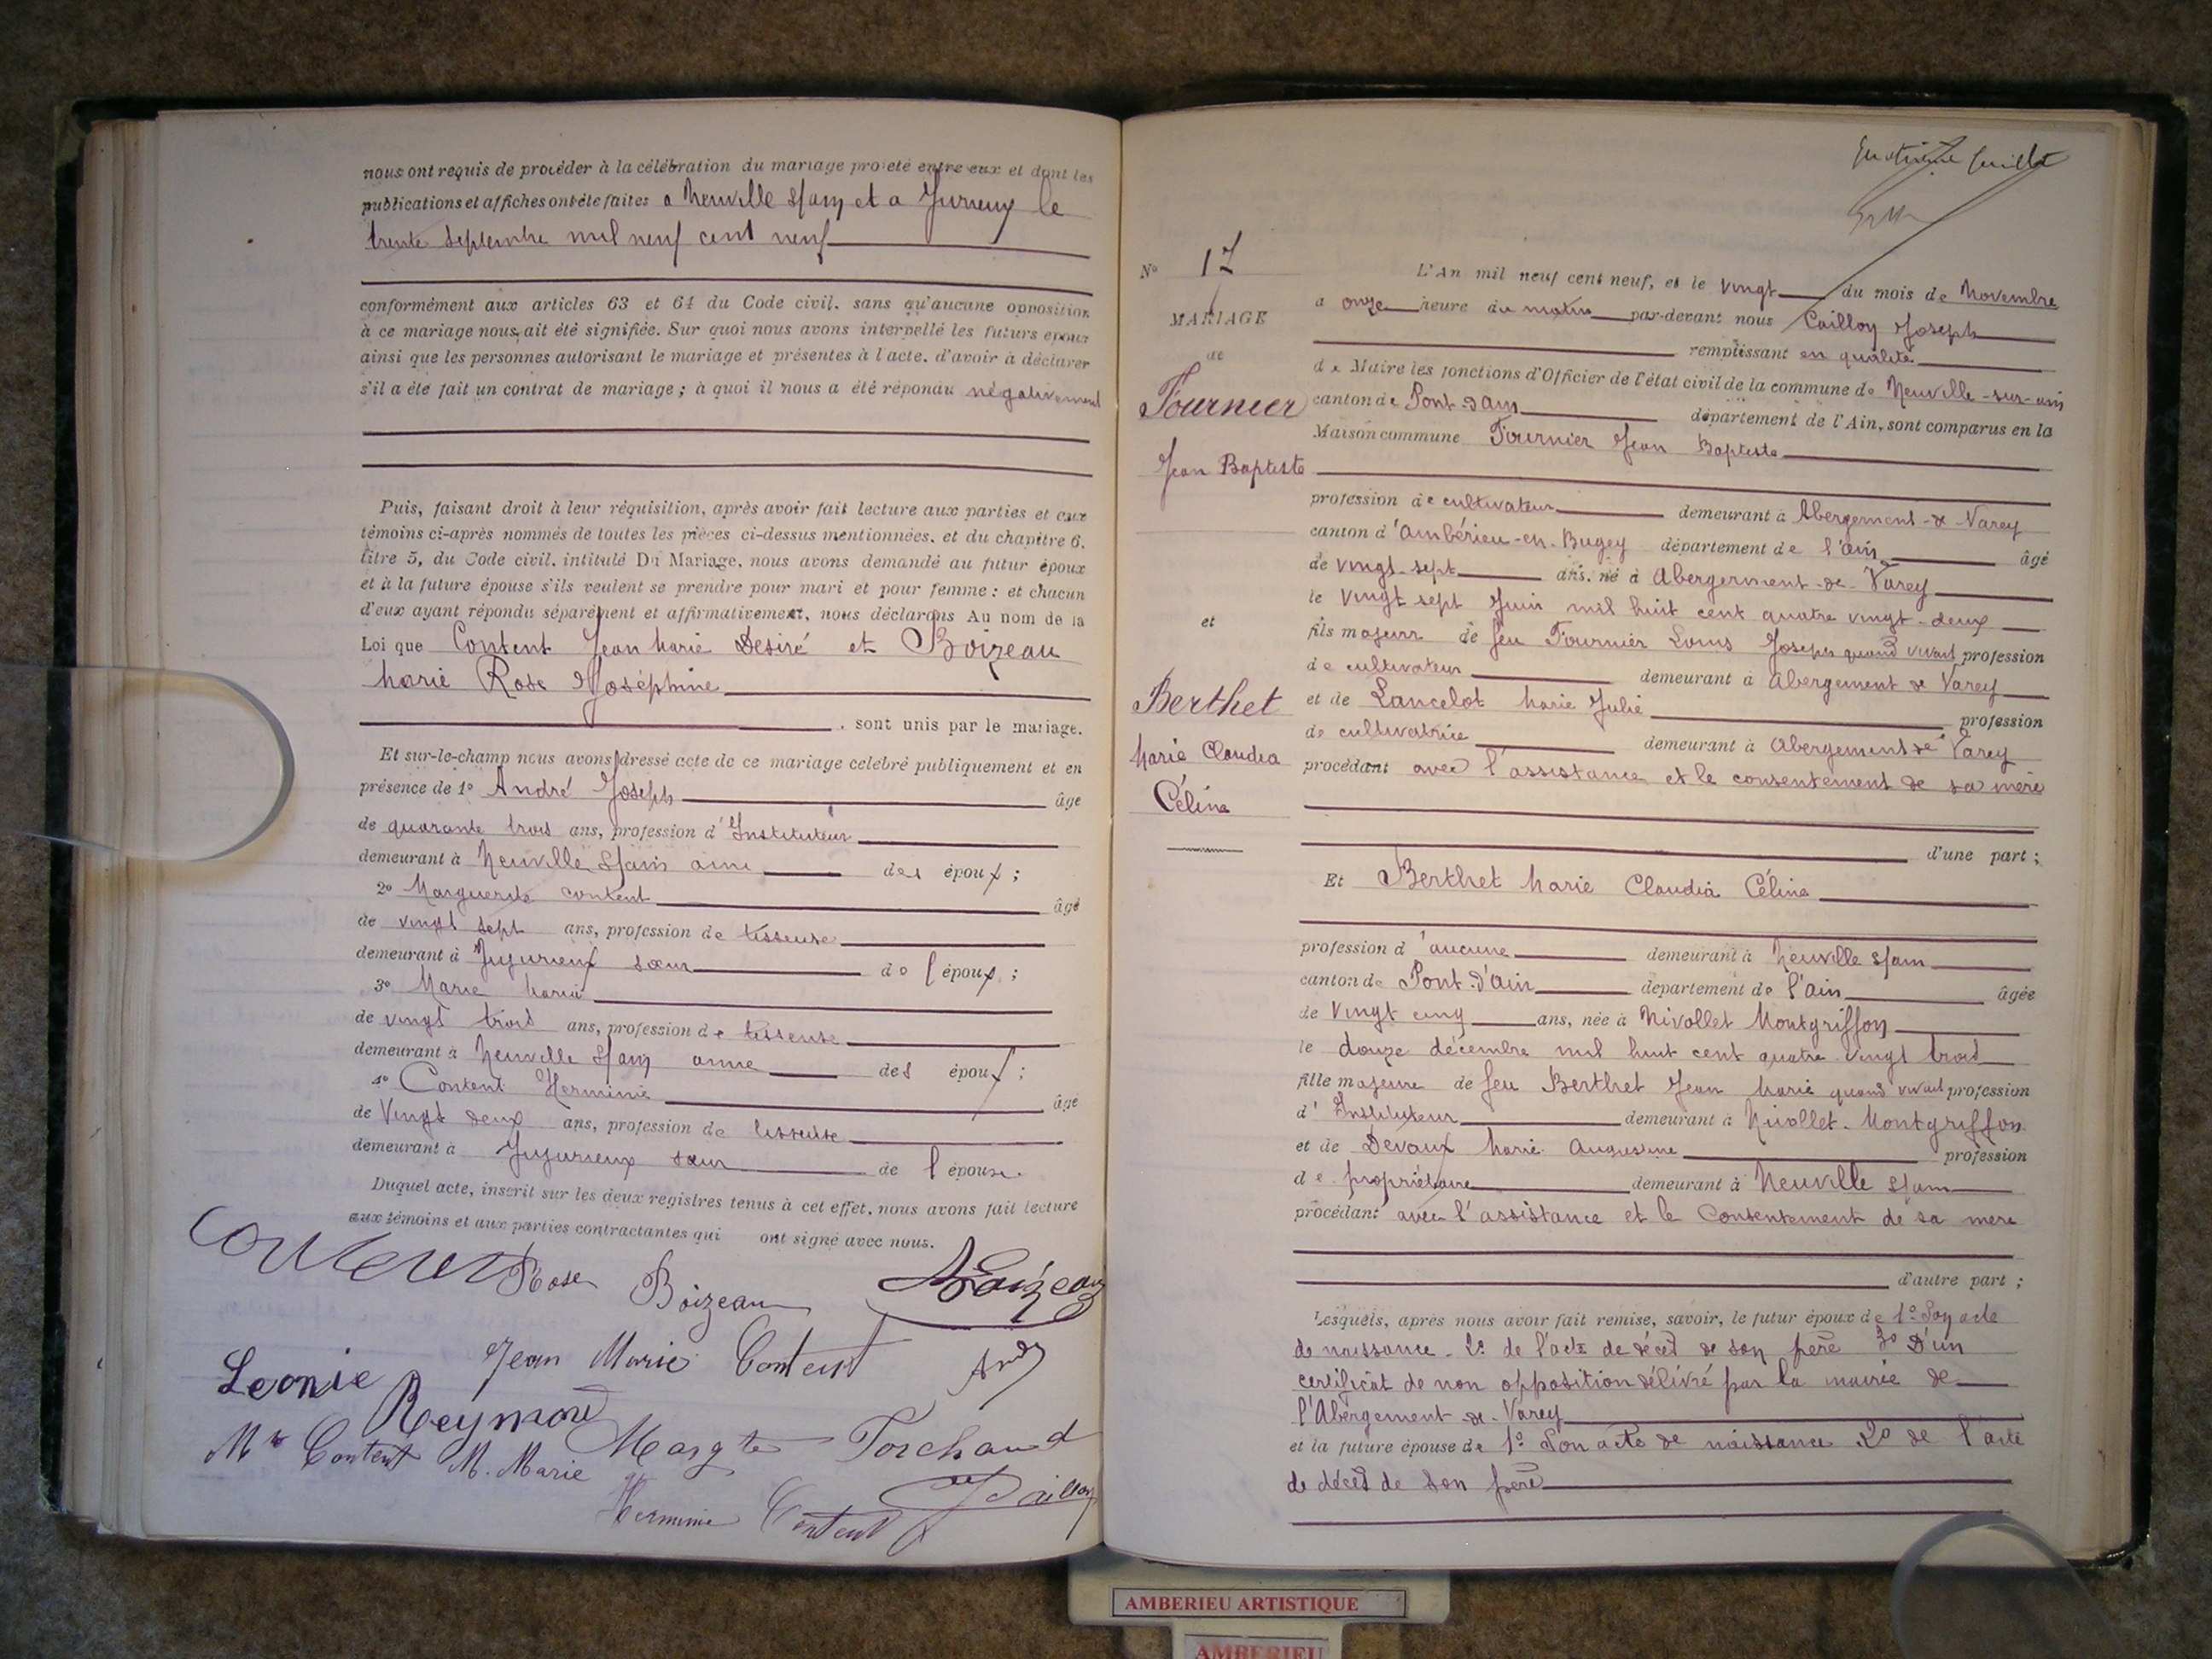 nous ont requis de procéder à la célébration du mariage projeté entre eux et dont les
publications et affiches ont été faites a Neuville s/ain et a Jujurieux le
trente septembre mil neuf cent neuf
conformément aux articles 63 et 64 du Code civil, sans qu'aucune opposition
à ce mariage nous ait été signifiée. Sur quoi nous avons interpellé les futurs epoux
ainsi que les personnes autorisant le mariage et présentes à l'acte, d'avoir à déclarer
s'il a été fait un contrat de mariage ; à quoi il nous a été répondu négativement
Puis, faisant droit à leur réquisition, après avoir fait lecture aux parties et aux
témoins ci-après nommés de toutes les pièces ci-dessus mentionnées, et du chapitre 6,
titre 5, du Code civil, intitulé Du Mariage, nous avons demandé au futur époux
et à la future épouse s'ils veulent se prendre pour mari et pour femme ; et chacun
d'eux ayant répondu séparément et affirmativement, nous déclarons Au nom de la
Loi que Content Jean Marie Desiré et Boizeau
Marie Rose Joséphine
, sont unis par le mariage.
Et sur-le-champ nous avons dressé acte de ce mariage celebré publiquement et en
présence de 1º André Joseph âgé
de quarante trois ans, profession d'Instituteur
demeurant à Neuville s/ain ami des époux ;
2º Marguerite content âgé
de vingt sept ans, profession de tisseuse
demeurant à Jujurieux sœur de l époux ;
3º Marie Marie
de vingt trois ans, profession de tisseuse
demeurant à Neuville s/ain amie des époux ;
4º Content Herminie âgé
de Vingt deux ans, profession de tisseuse
demeurant à Jujurieux sœur de l épouse
Duquel acte, inscrit sur les deux registres tenus à cet effet, nous avons fait lecture
aux témoins et aux parties contractantes qui ont signé avec nous.
Content Rose Boizeau Boizeau
Jean Marie Content
Leonie Reymond
Content M. Marie Margte Torchaud
Herminie Content Caillon
Nº 17
MARIAGE
de
Fournier
Jean Baptiste
et
Berthet
Marie Claudia
Célina
L'An mil neuf cent neuf, et le vingt du mois de Novembre
a onze heure du matin par-devant nous Cailloy Joseph
remplissant en qualité
de Maire les fonctions d'Officier de l'état civil de la commune de Neuville-sur-ain
canton de Pont-d'Ain département de l'Ain, sont comparus en la
Maison commune Fournier Jean Baptiste
profession de cultivateur demeurant à Abergement-de-Varey
canton d'Ambérieu-en-Bugey département de l'ain âgé
de vingt-sept ans, né à Abergement-de-Varey
le vingt sept Juin mil huit cent quatre vingt-deux
fils majeur de feu Fournier Louis Joseph quand vivant profession
de cultivateur demeurant à Abergement de Varey
et de Lancelot Marie Julie profession
de cultivatrice demeurant à Abergement de Varey
procédant avec l'assistance et le consentement de sa mère
d'une part ;
Et Berthet Marie Claudia Célina
profession d'aucune demeurant à Neuville s/ain
canton de Pont-d'Ain département de l'Ain âgée
de Vingt cinq ans, née à Nivollet Montgriffon
le douze décembre mil huit cent quatre vingt trois
fille majeure de feu Berthet Jean Marie quand vivant profession
d'Instituteur demeurant à Nivollet-Montgriffon
et de Devaux Marie Augustine profession
de propriétaire demeurant à Neuville s/ain
procédant avec l'assistance et le Consentement de sa mere
d'autre part ;
Lesquels, après nous avoir fait remise, savoir, le futur époux de 1º Son acte
de naissance. 2º de l'acte de décès de son père 3º D'un
certificat de non opposition délivré par la mairie de
l'Abergement-de-Varey
et la future épouse de 1º Son acte de naissance 2º de l'acte
de décès de son père
AMBERIEU ARTISTIQUE
AMBERIEU